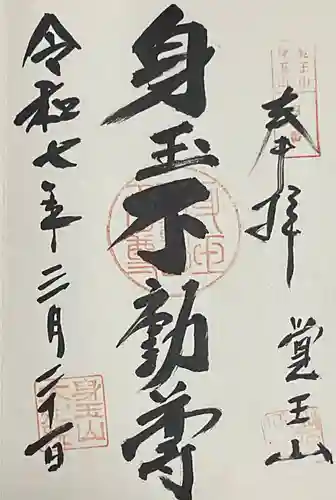 奉拝
覚王山
身玉不動尊
令和七年三月二十一日
身玉山